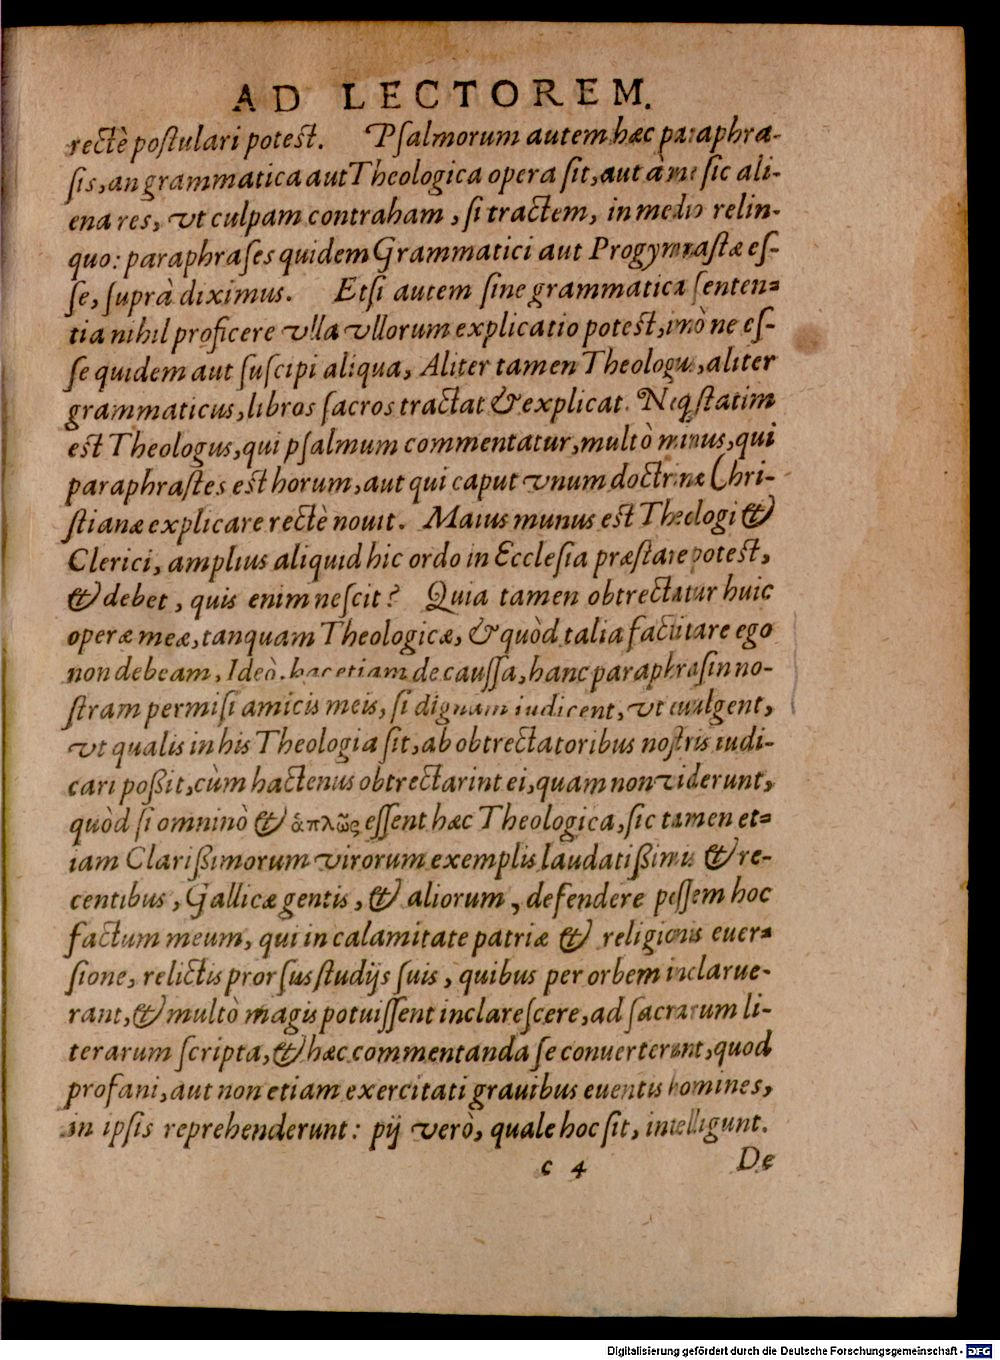 AD LECTOREM.
rectè poſtulari poteſt. Pſalmorum autem hæc paraphra-
ſis, an grammatica aut Theologica opera ſit, aut à me ſic ali-
ena res, vt culpam contraham, ſi tractem, in medio relin-
quo: paraphraſes quidem Grammatici aut Progymnaſtæ eſ-
ſe, ſuprà diximus. Etſi autem ſine grammatica ſenten-
tia nihil proficere vlla vllorum explicatio poteſt, imò ne eſ-
ſe quidem aut ſuſcipi aliqua, Aliter tamen Theologus, aliter
grammaticus, libros ſacros tractat & explicat. Neq́ ſtatim
eſt Theologus, qui pſalmum commentatur, multò minus, qui
paraphraſtes eſt horum, aut qui caput vnum doctrinæ Chri-
ſtianæ explicare rectè nouit. Maius munus eſt Theologi &
Clerici, amplius aliquid hic ordo in Eccleſia præſtare poteſt,
& debet, quis enim neſcit? Quia tamen obtrectatur huic
operæ meæ, tanquam Theologicæ, & quòd talia factitare ego
non debeam, Ideò, hac etiam de cauſſa, hanc paraphraſin no-
ſtram permiſi amicis meis, ſi dignam iudicent, vt euulgent,
vt qualis in his Theologia ſit, ab obtrectatoribus noſtris iudi-
cari poßit, cùm hactenus obtrectarint ei, quam non viderunt,
quòd ſi omninò & ἁπλῶς eſſent hæc Theologica, ſic tamen et-
iam Clarißimorum virorum exemplis laudatißimis & re-
centibus, Gallicæ gentis, & aliorum, defendere poſſem hoc
factum meum, qui in calamitate patriæ & religionis euer-
ſione, relictis prorſus ſtudijs ſuis, quibus per orbem inclarue-
rant, & multò magis potuiſſent inclareſcere, ad ſacrarum li-
terarum ſcripta, & hæc commentanda ſe conuerterunt, quod
profani, aut non etiam exercitati grauibus euentis homines,
in ipſis reprehenderunt: pij verò, quale hoc ſit, intelligunt.
c 4 De
Digitalisierung gefördert durch die Deutsche Forschungsgemeinschaft - DFG